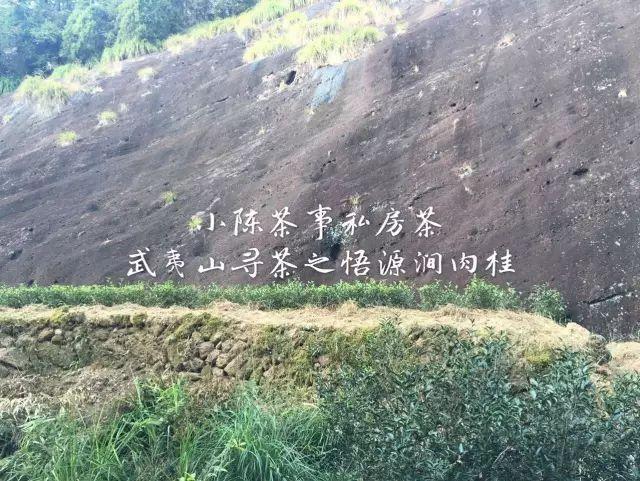 小陈茶事私房茶
武夷山寻茶之悟源涧肉桂